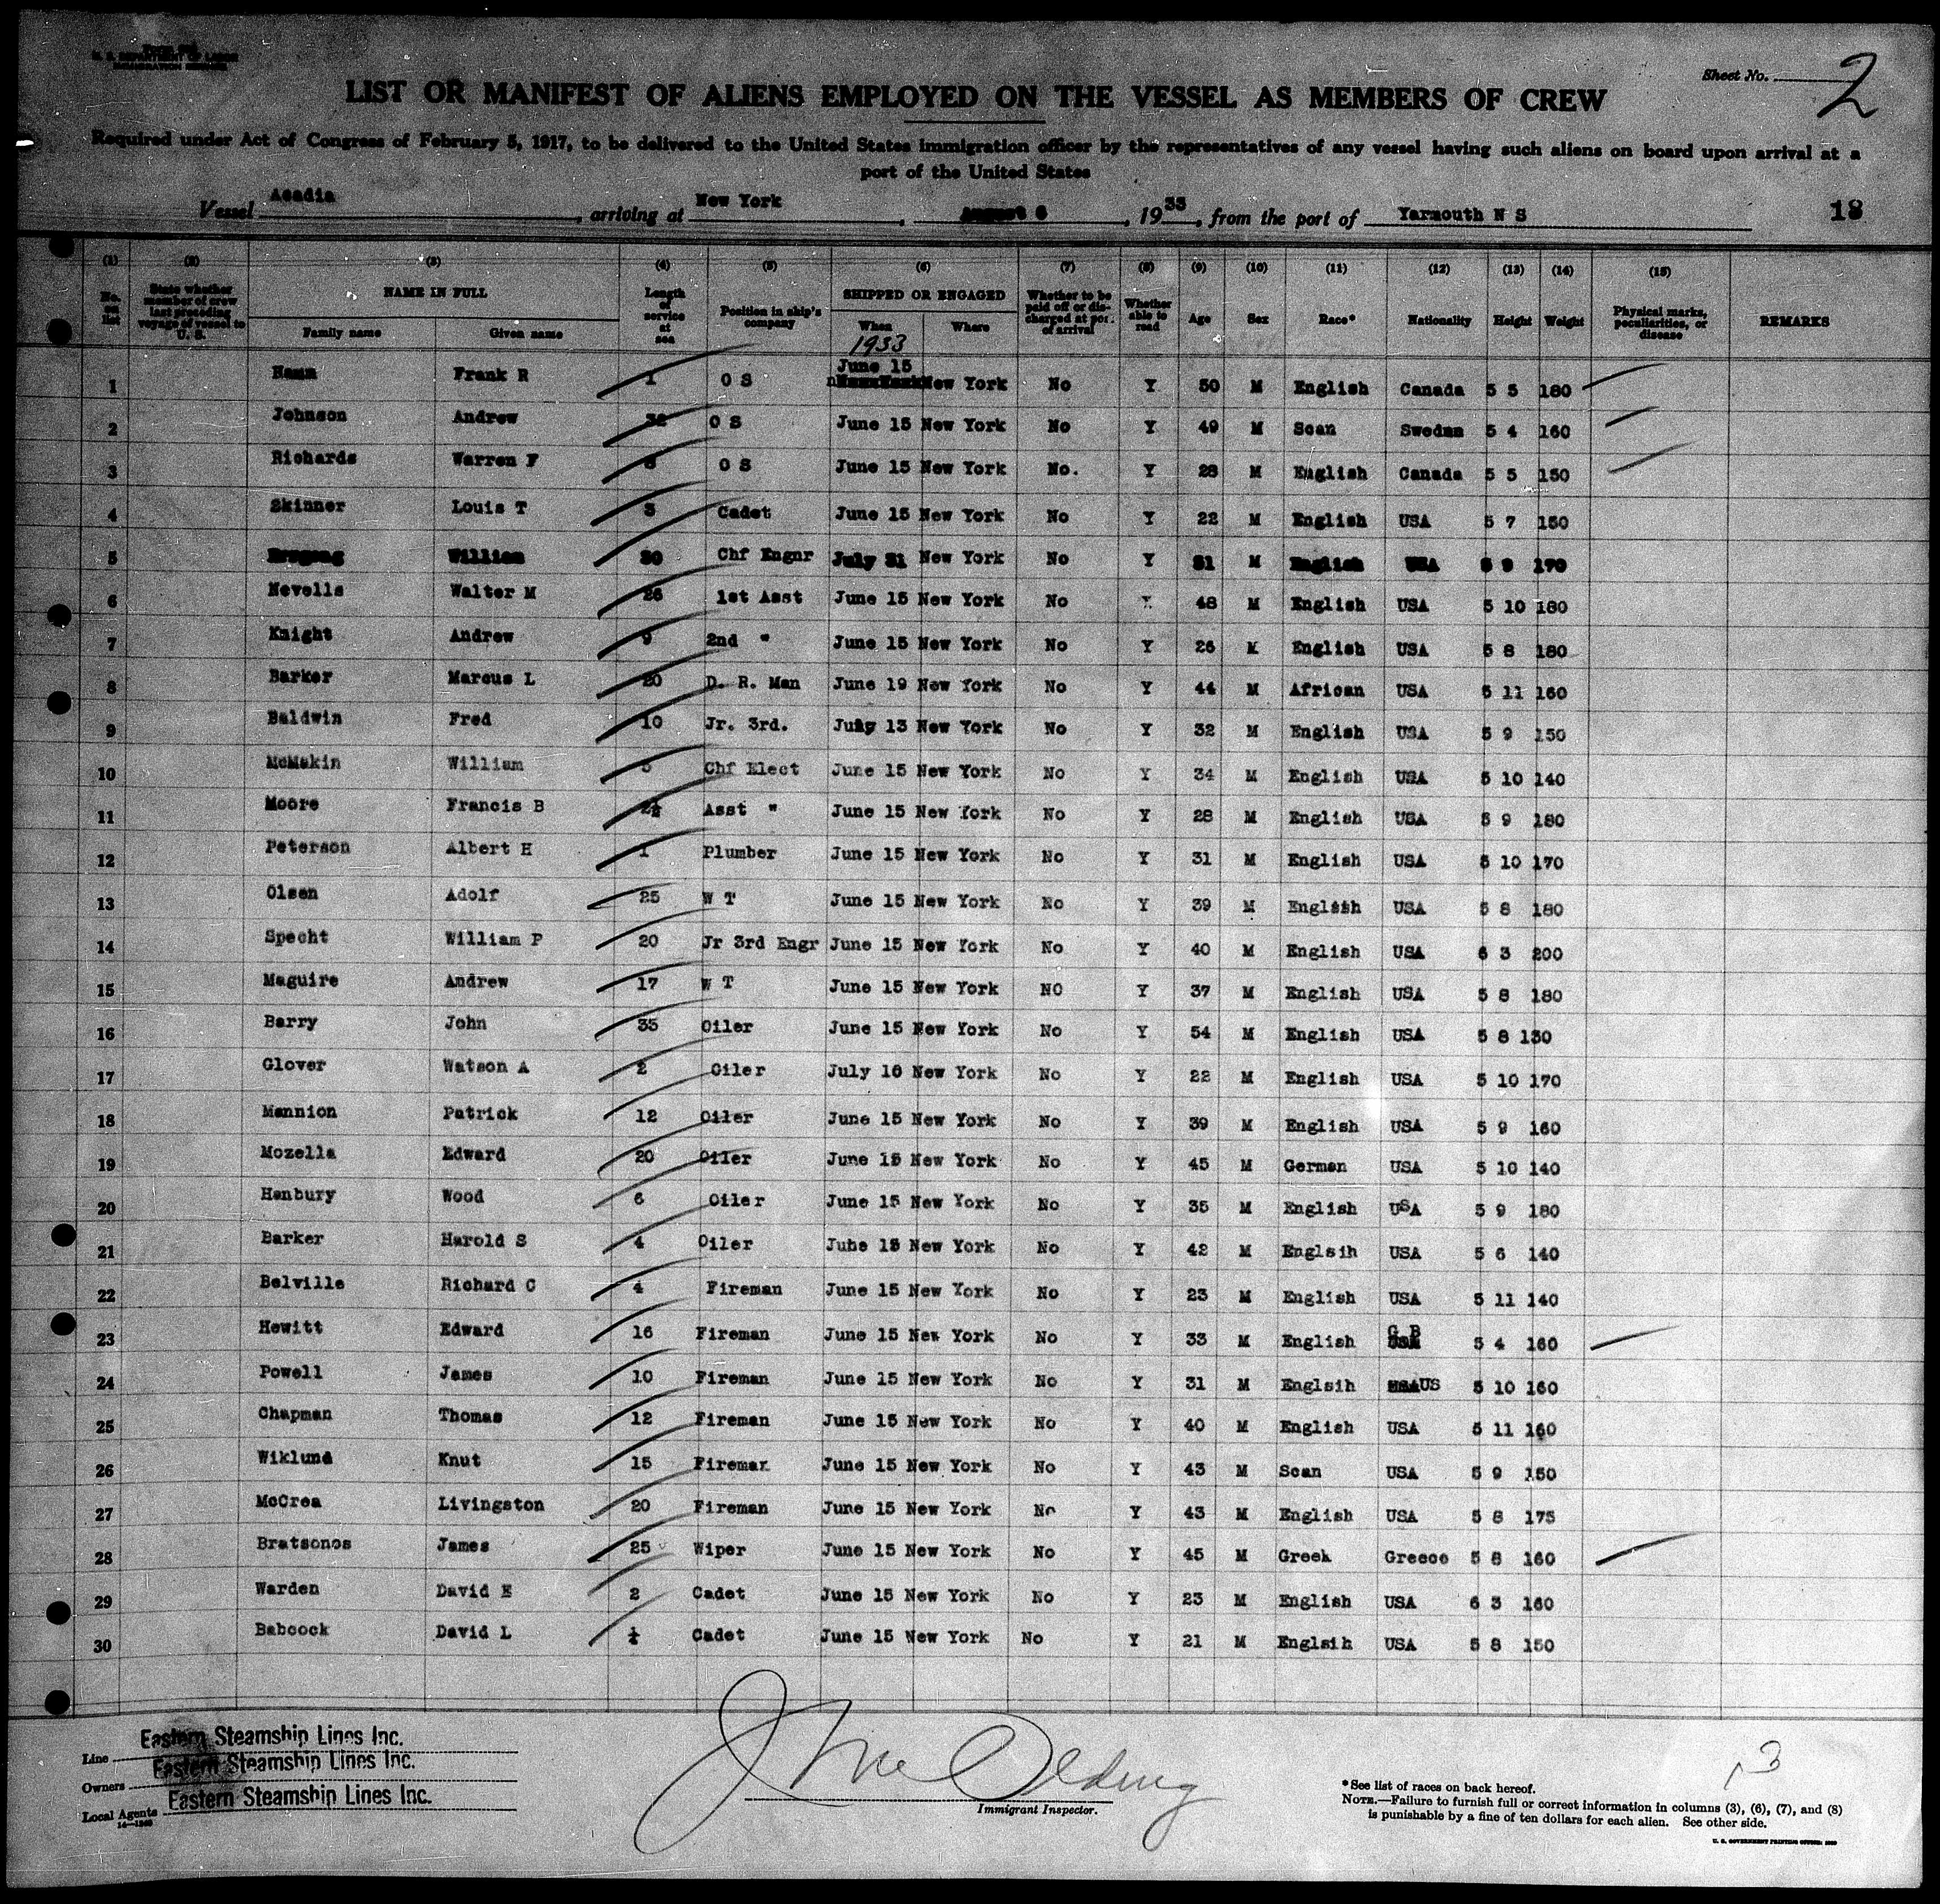 Sheet No. 2
LIST OR MANIFEST OF ALIENS EMPLOYED ON THE VESSEL AS MEMBERS OF CREW
Required under Act of Congress of February 5, 1917, to be delivered to the United States immigration officer by the representatives of any vessel having such aliens on board upon arrival at a
port of the United States
Vessel Acadia, arriving at New York, August 6, 1933, from the port of Yarmouth N S 18
(1) (2) (3) (4) (5) (6) (7) (8) (9) (10) (11) (12) (13) (14) (15)
No. on list State whether member of crew last preceding voyage of vessel to U. S. NAME IN FULL Family name Given name Length of service at sea Position in ship's company SHIPPED OR ENGAGED When Where Whether to be paid off or discharged at port of arrival Whether able to read Age Sex Race* Nationality Height Weight Physical marks, peculiarities, or disease REMARKS
1933
June 15
1 Frank R 1 O S New York No Y 50 M English Canada 5 5 180
2 Johnson Andrew O S June 15 New York No Y 49 M Scan Sweden 5 4 160
3 Richards Warren F O S June 15 New York No. Y 28 M English Canada 5 5 150
4 Skinner Louis T Cadet June 15 New York No Y 22 M English USA 5 7 150
5 William Chf Engnr July 31 New York No Y M English USA 170
6 Nevells Walter M 26 1st Asst June 15 New York No Y 48 M English USA 5 10 180
7 Knight Andrew 9 2nd " June 15 New York No Y 26 M English USA 5 8 180
8 Barker Marcus L 20 D. R. Man June 19 New York No Y 44 M African USA 5 11 160
9 Baldwin Fred 10 Jr. 3rd. July 13 New York No Y 32 M English USA 5 9 150
10 McMakin William Chf Elect June 15 New York No Y 34 M English USA 5 10 140
11 Moore Francis B 2½ Asst " June 15 New York No Y 28 M English USA 5 9 180
12 Peterson Albert H 1 Plumber June 15 New York No Y 31 M English USA 5 10 170
13 Olsen Adolf 25 W T June 15 New York No Y 39 M English USA 5 8 180
14 Specht William P 20 Jr 3rd Engr June 15 New York No Y 40 M English USA 6 3 200
15 Maguire Andrew 17 W T June 15 New York NO Y 37 M English USA 5 8 180
16 Barry John 35 Oiler June 15 New York No Y 54 M English USA 5 8 130
17 Glover Watson A 2 Oiler July 16 New York No Y 22 M English USA 5 10 170
18 Mannion Patrick 12 Oiler June 15 New York No Y 39 M English USA 5 9 160
19 Mozella Edward 20 Oiler June 15 New York No Y 45 M German USA 5 10 140
20 Hanbury Wood 6 Oiler June 15 New York No Y 35 M English USA 5 9 180
21 Barker Harold S 4 Oiler June 15 New York No Y 42 M Englsih USA 5 6 140
22 Belville Richard C 4 Fireman June 15 New York No Y 23 M English USA 5 11 140
23 Hewitt Edward 16 Fireman June 15 New York No Y 33 M English G B 5 4 160
24 Powell James 10 Fireman June 15 New York No Y 31 M Englsih US 5 10 160
25 Chapman Thomas 12 Fireman June 15 New York No Y 40 M English USA 5 11 160
26 Wiklund Knut 15 Fireman June 15 New York No Y 43 M Scan USA 5 9 150
27 McCrea Livingston 20 Fireman June 15 New York No Y 43 M English USA 5 8 175
28 Bratsonos James 25 Wiper June 15 New York No Y 45 M Greek Greece 5 8 160
29 Warden David E 2 Cadet June 15 New York No Y 23 M English USA 6 3 160
30 Babcock David L Cadet June 15 New York No Y 21 M Englsih USA 5 8 150
Line Eastern Steamship Lines Inc.
Owners Eastern Steamship Lines Inc.
Local Agents Eastern Steamship Lines Inc.
Immigrant Inspector.
13
*See list of races on back hereof.
NOTE.—Failure to furnish full or correct information in columns (3), (6), (7), and (8)
is punishable by a fine of ten dollars for each alien. See other side.